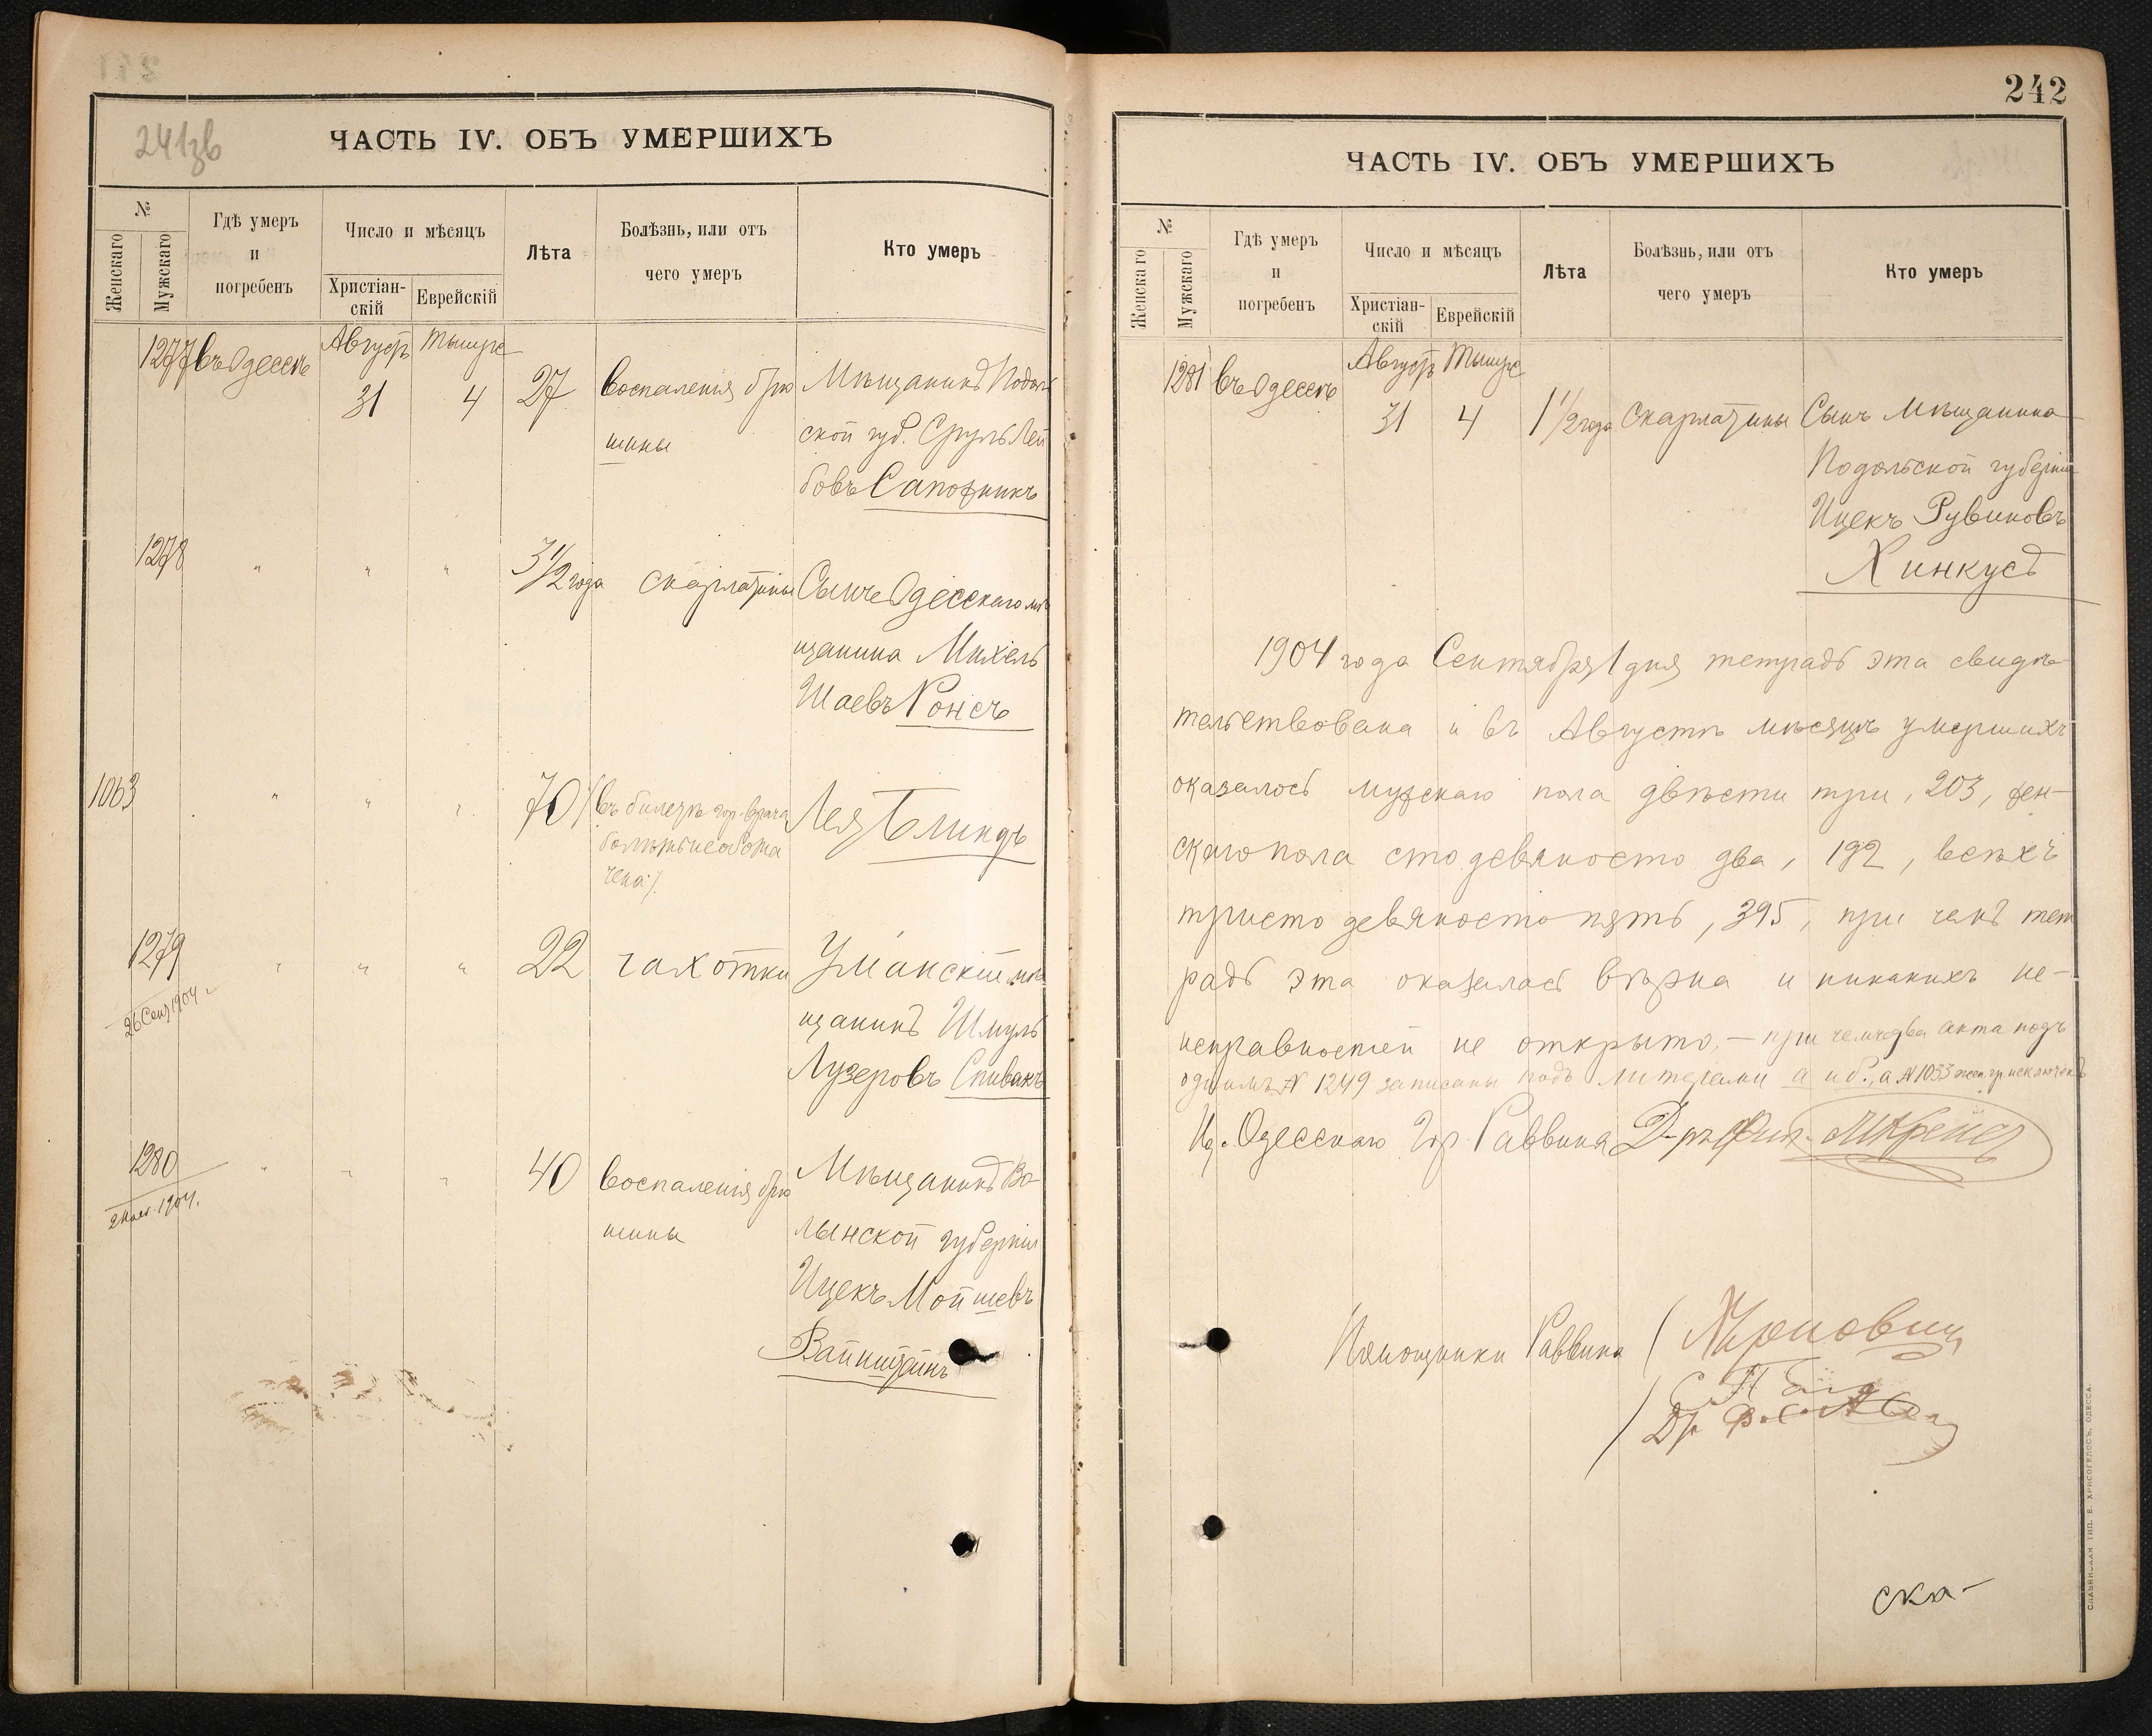 241зв
ЧАСТЬ IV. ОБЪ УМЕРШИХЪ
№
Женскаго
Мужскаго
Гдѣ умеръ
и
погребенъ
Число и мѣсяцъ
Христіан-
скій
Еврейскій
Лѣта
Болѣзнь, или отъ
чего умеръ
Кто умеръ
1277 въ Одессѣ Августъ Тишре
31 4 27 воспаленія брю Мѣщанинъ Подоль
шины ской губ. Сруль Лей
бовъ Сапожникъ
1278 " " " 3 1/2 года скарлатины Сынъ Одесскаго мѣ
щанина Михель
Шаевъ
1063 " " " 70 /:въ билетѣ гор. врача Лея Блиндъ
болѣзнь не обозна
чена:/.
1279 " " " 22 чахотки Уманскій мѣ
26 Сен 1904 г. щанинъ Шмуль
Лузеровъ Спивакъ
1280 " " " 40 воспаленія брю Мѣщанинъ Во-
1904. шины лынской губерніи
Ицекъ Мойшевъ
Вайнштейнъ
242
ЧАСТЬ IV. ОБЪ УМЕРШИХЪ
№
Женскаго
Мужскаго
Гдѣ умеръ
и
погребенъ
Число и мѣсяцъ
Христіан-
скій
Еврейскій
Лѣта
Болѣзнь, или отъ
чего умеръ
Кто умеръ
1281 въ Одессѣ Августъ Тишре
31 4 1 1/2 года Скарлатины Сынъ Мѣщанина
Подольской губерніи
Ицекъ Рувиновъ
Хинкусъ
1904 года Сентября 1 дня тетрадь эта свидѣ-
тельствована и въ Августѣ мѣсяцѣ умершихъ
оказалось мужскаго пола двѣсти три, 203, жен-
скаго пола сто девяносто два, 192, всѣхъ
триста девяносто пять, 395, при чемъ тет
радь эта оказалась вѣрна и никакихъ не-
исправностей не открыто. - при чемъ два акта подъ
однимъ № 1249 записаны подъ литерами а и б., а № 1033 жен. гр. исключенъ
Одесскаго Гор. Раввина Д-ръ Фил.
Помощники Раввина
Др
ска-
СЛАВЯНСКАЯ ТИП. Е. ХРИСОГЕЛОСЪ, ОДЕССА.